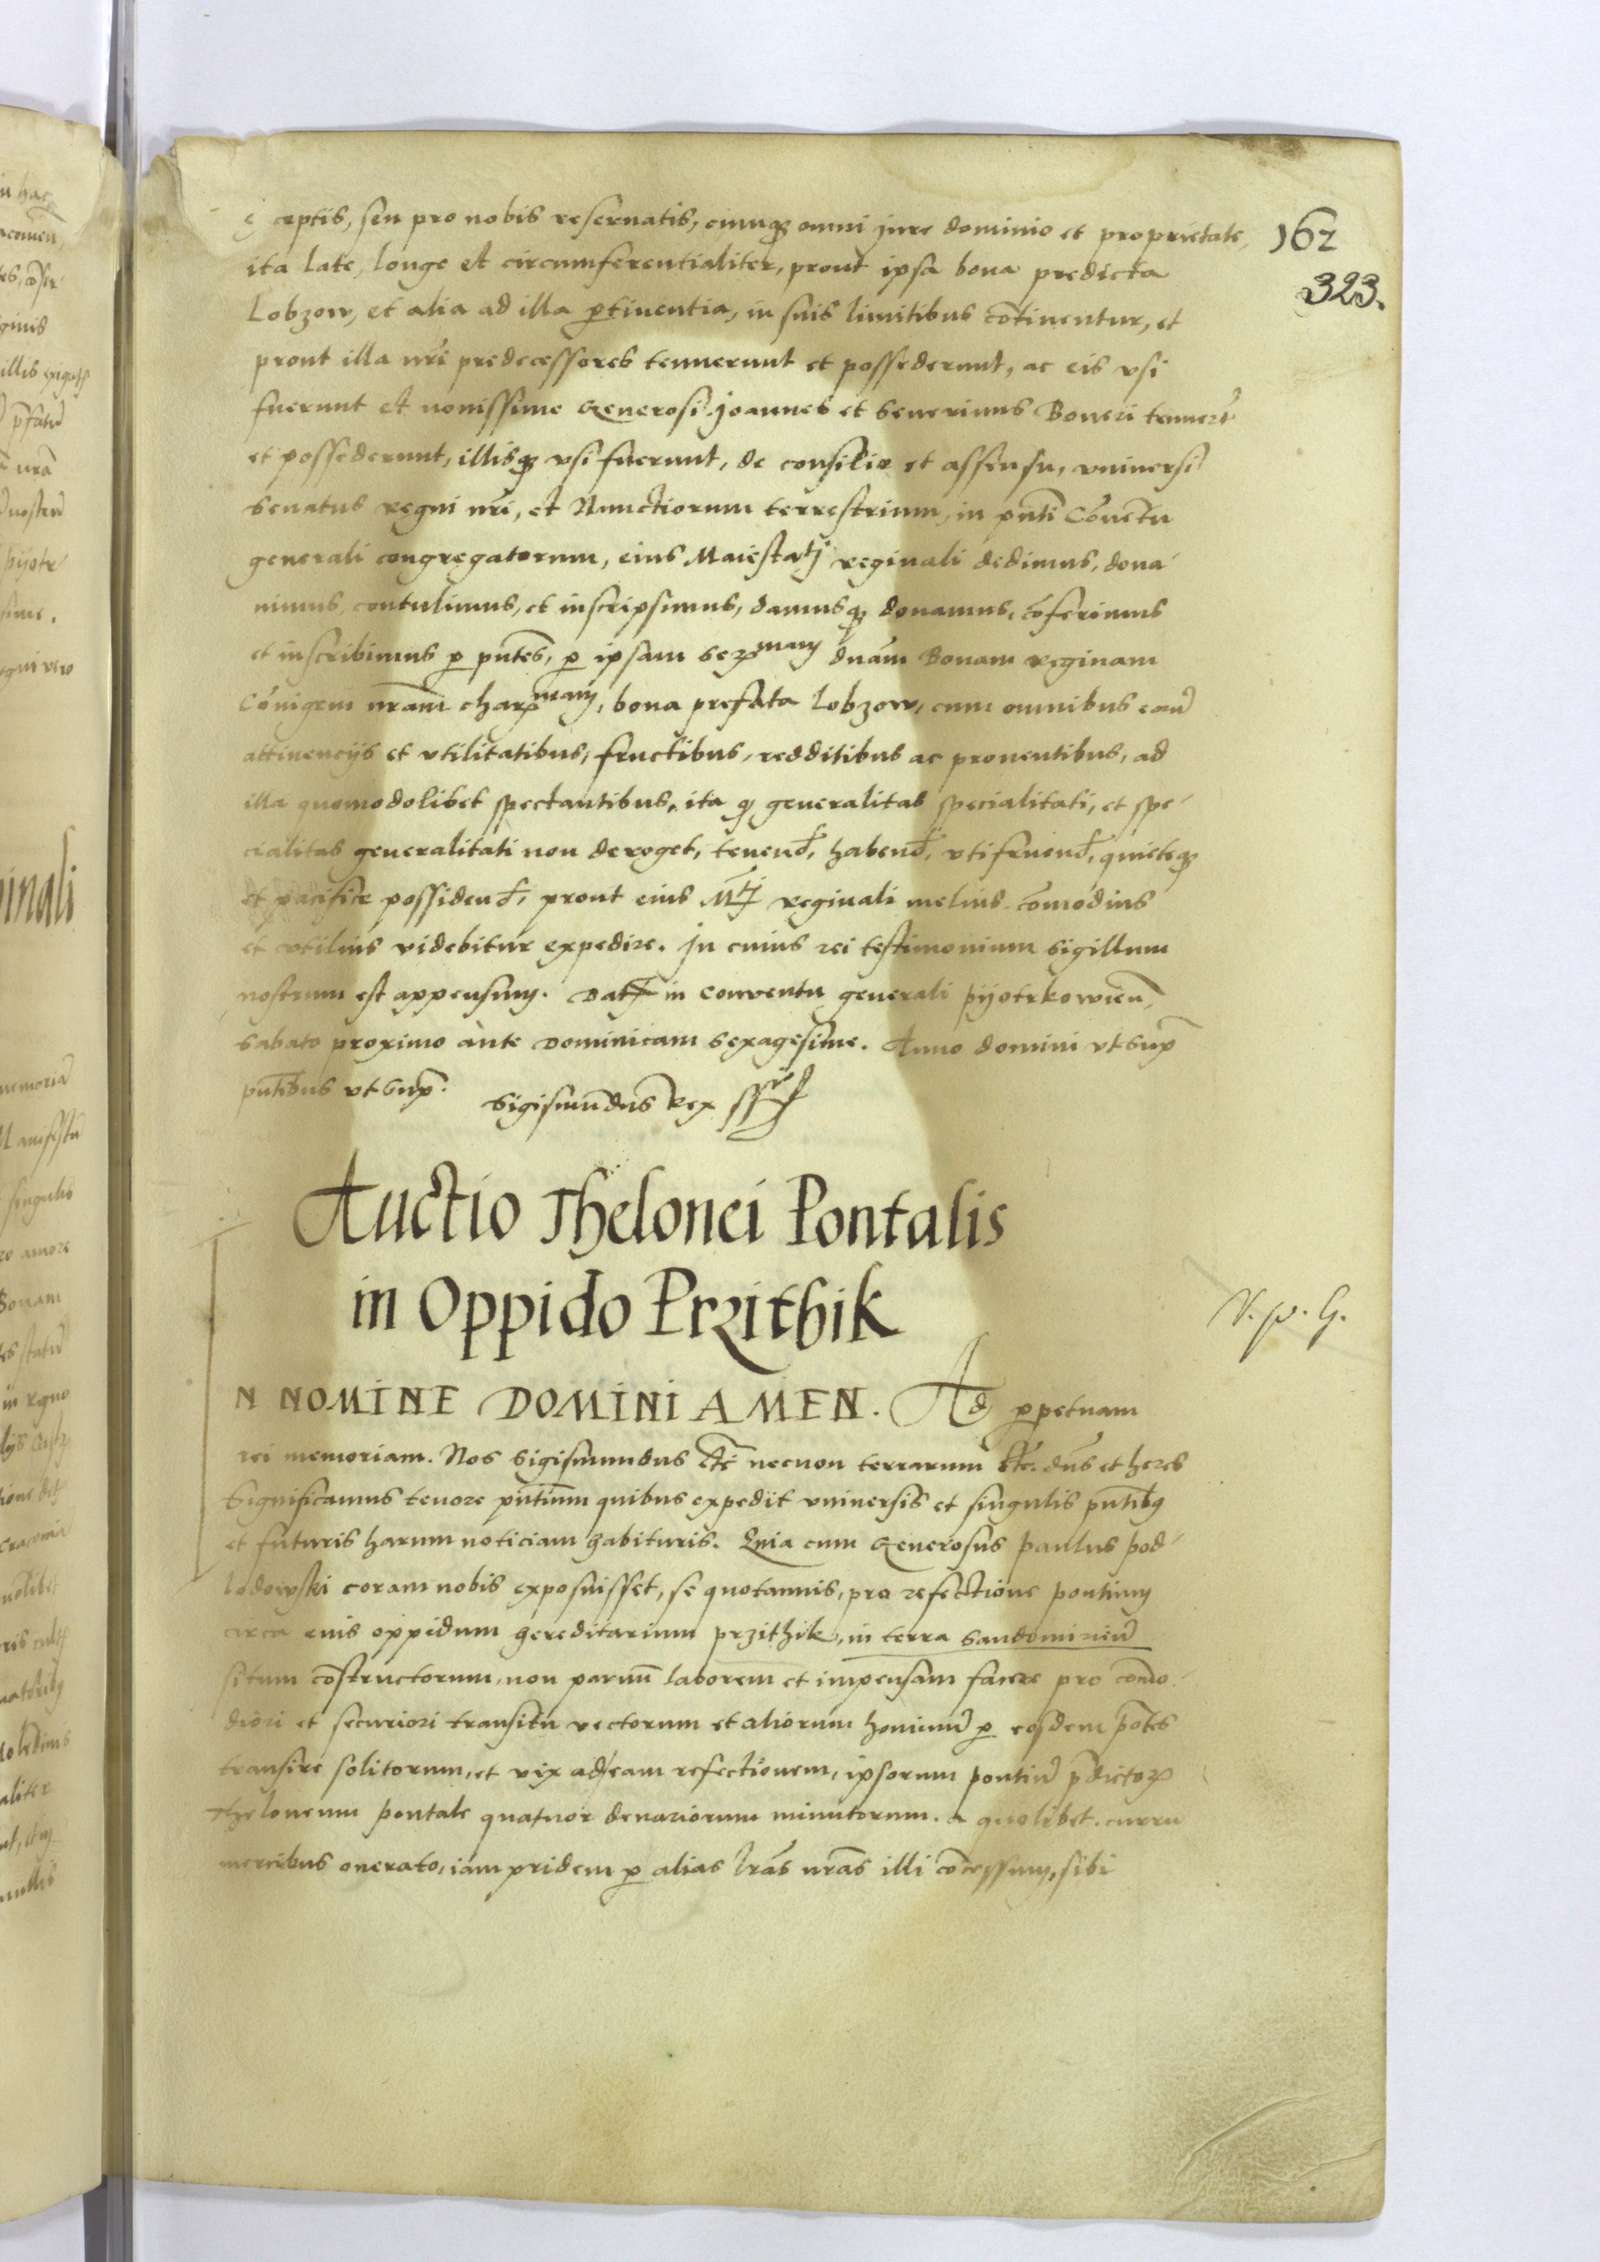 ceptis, seu pro nobis reseruatis, cumq; omni jure dominio et proprietate,
162
ita late, longe et circumferentialiter, prout ipsa bona predicta
323.
Lobzow, et alia ad illa ptinentia, in suis limitibus cõtinentur, et
prout illa nri predecessores tenuerunt et possederunt, ac eis vsi
fuerunt et nouissime Generosi Joannes et Seuerinus Boneri tenuert
et possederunt, illisq; vsi fuerunt, de consilio et assensu, vniuersi
Senatus regni nri, et Nunctiorum terrestrium, in pnti Cõuẽtu
generali congregatorum, eius Maiestatj reginali dedimus, dona-
uimus, contulimus, et inscripsimus, damusq; donamus, cõferimus
et inscribimus p pntes, p ipsam Sermam dnam Bonam reginam
Cõiugem nram charmam, bona prefata Lobzow, cum omnibus earu
attinencijs et vtilitatibus, fructibus, redditibus ac prouentibus, ad
illa quomodolibet spectantibus, ita q; generalitas specialitati, et spe-
cialitas generalitati non deroget, tenend, habend, vtifruend, quieteq;
et pacifice possidend, prout eius Mtj reginali melius cõmodius
et vtilius videbitur expedire. In cuius rei testimonium Sigillum
nostrum est appensum. Dat in Conuentu generali Pijotrkowien,
Sabato proximo ante Dominicam Sexagesime. Anno domini vt Sup
pntibus vt Sup. Sigismũdus Rex ss
Auctio Thelonei Pontalis
in Oppido Przithik
V. p. G.
N NOMINE DOMINI AMEN. Ad ppetuam
rei memoriam. Nos Sigismundus etc necnon terrarum etc. dns et heres
Significamus tenore pntium quibus expedit vniuersis et singulis pntibq
et futuris harum noticiam habituris. Quia cum Generosus Paulus Pod-
lodowski coram nobis exposuisset, se quotannis, pro refectione pontium
circa eius oppidum hereditarium Przithik, in terra Sandomirien
situm cõstructorum, non paruũ laborem et impensam facere pro cõmo-
diori et securiori transitu vectorum et aliorum hominũ p eosdem põtes
transire solitorum, et vix ad eam refectionem, ipsorum pontiũ pdictor
theloneum pontale quatuor denariorum minutorum. a quolibet curru
mercibus onerato, iam pridem p alias lras nras illi cõcessum, sibi